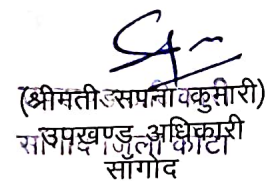 (श्रीमती सपना कुमारी)
उपखण्ड अधिकारी
सांगोद जिला कोटा
सांगोद